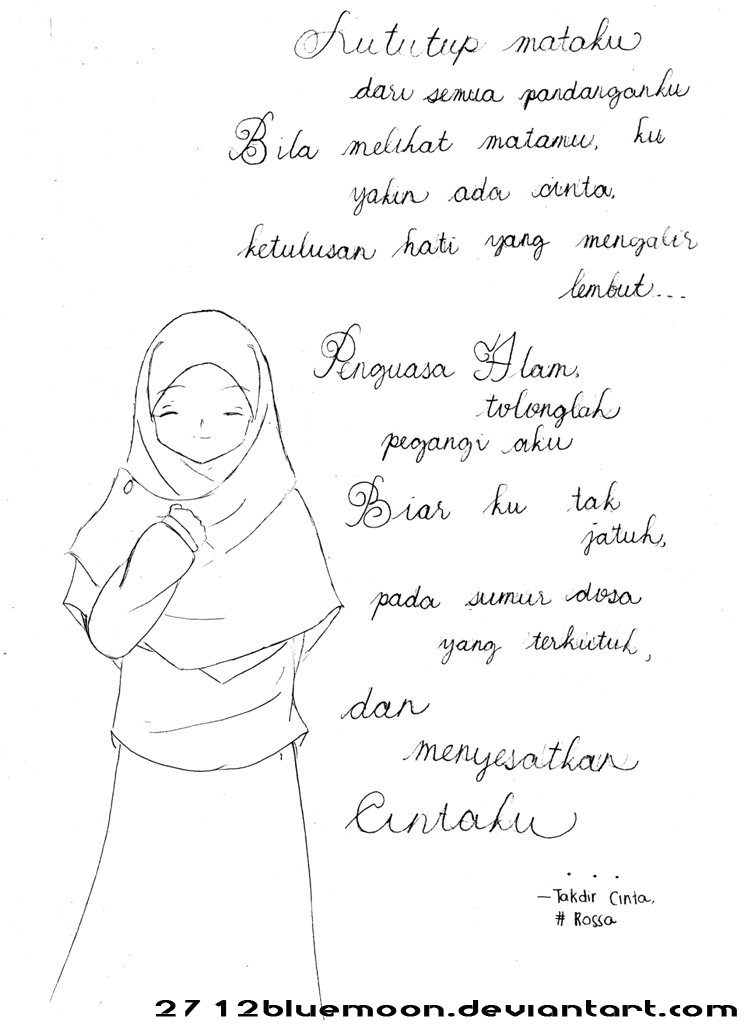 Kututup mataku
dari semua pandanganku
Bila melihat matamu, ku
yakin ada cinta,
ketulusan hati yang mengalir
lembut...
Penguasa Alam,
tolonglah
pegangi aku
Biar ku tak
jatuh,
pada sumur dosa
yang terkutuk,
dan
menyesatkan
Cintaku
. . .
—Takdir Cinta,
# Rossa
27 12bluemoon.deviantart.com